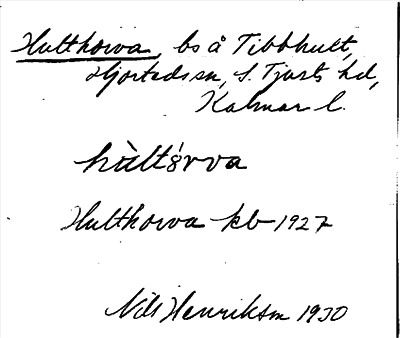 Hulthorva, bs å Tibbhult,
Hjorteds sn, S. Tjusts hd,
Kalmar l.
hùltórva
Hulthorva kb 1927
Nils Henriksson 1930